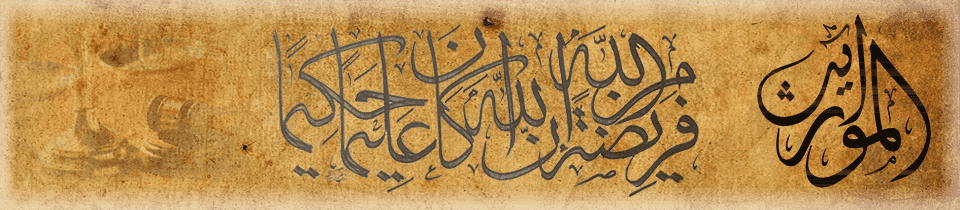 المواريث
فريضة من الله إن الله كان عليما حكيما